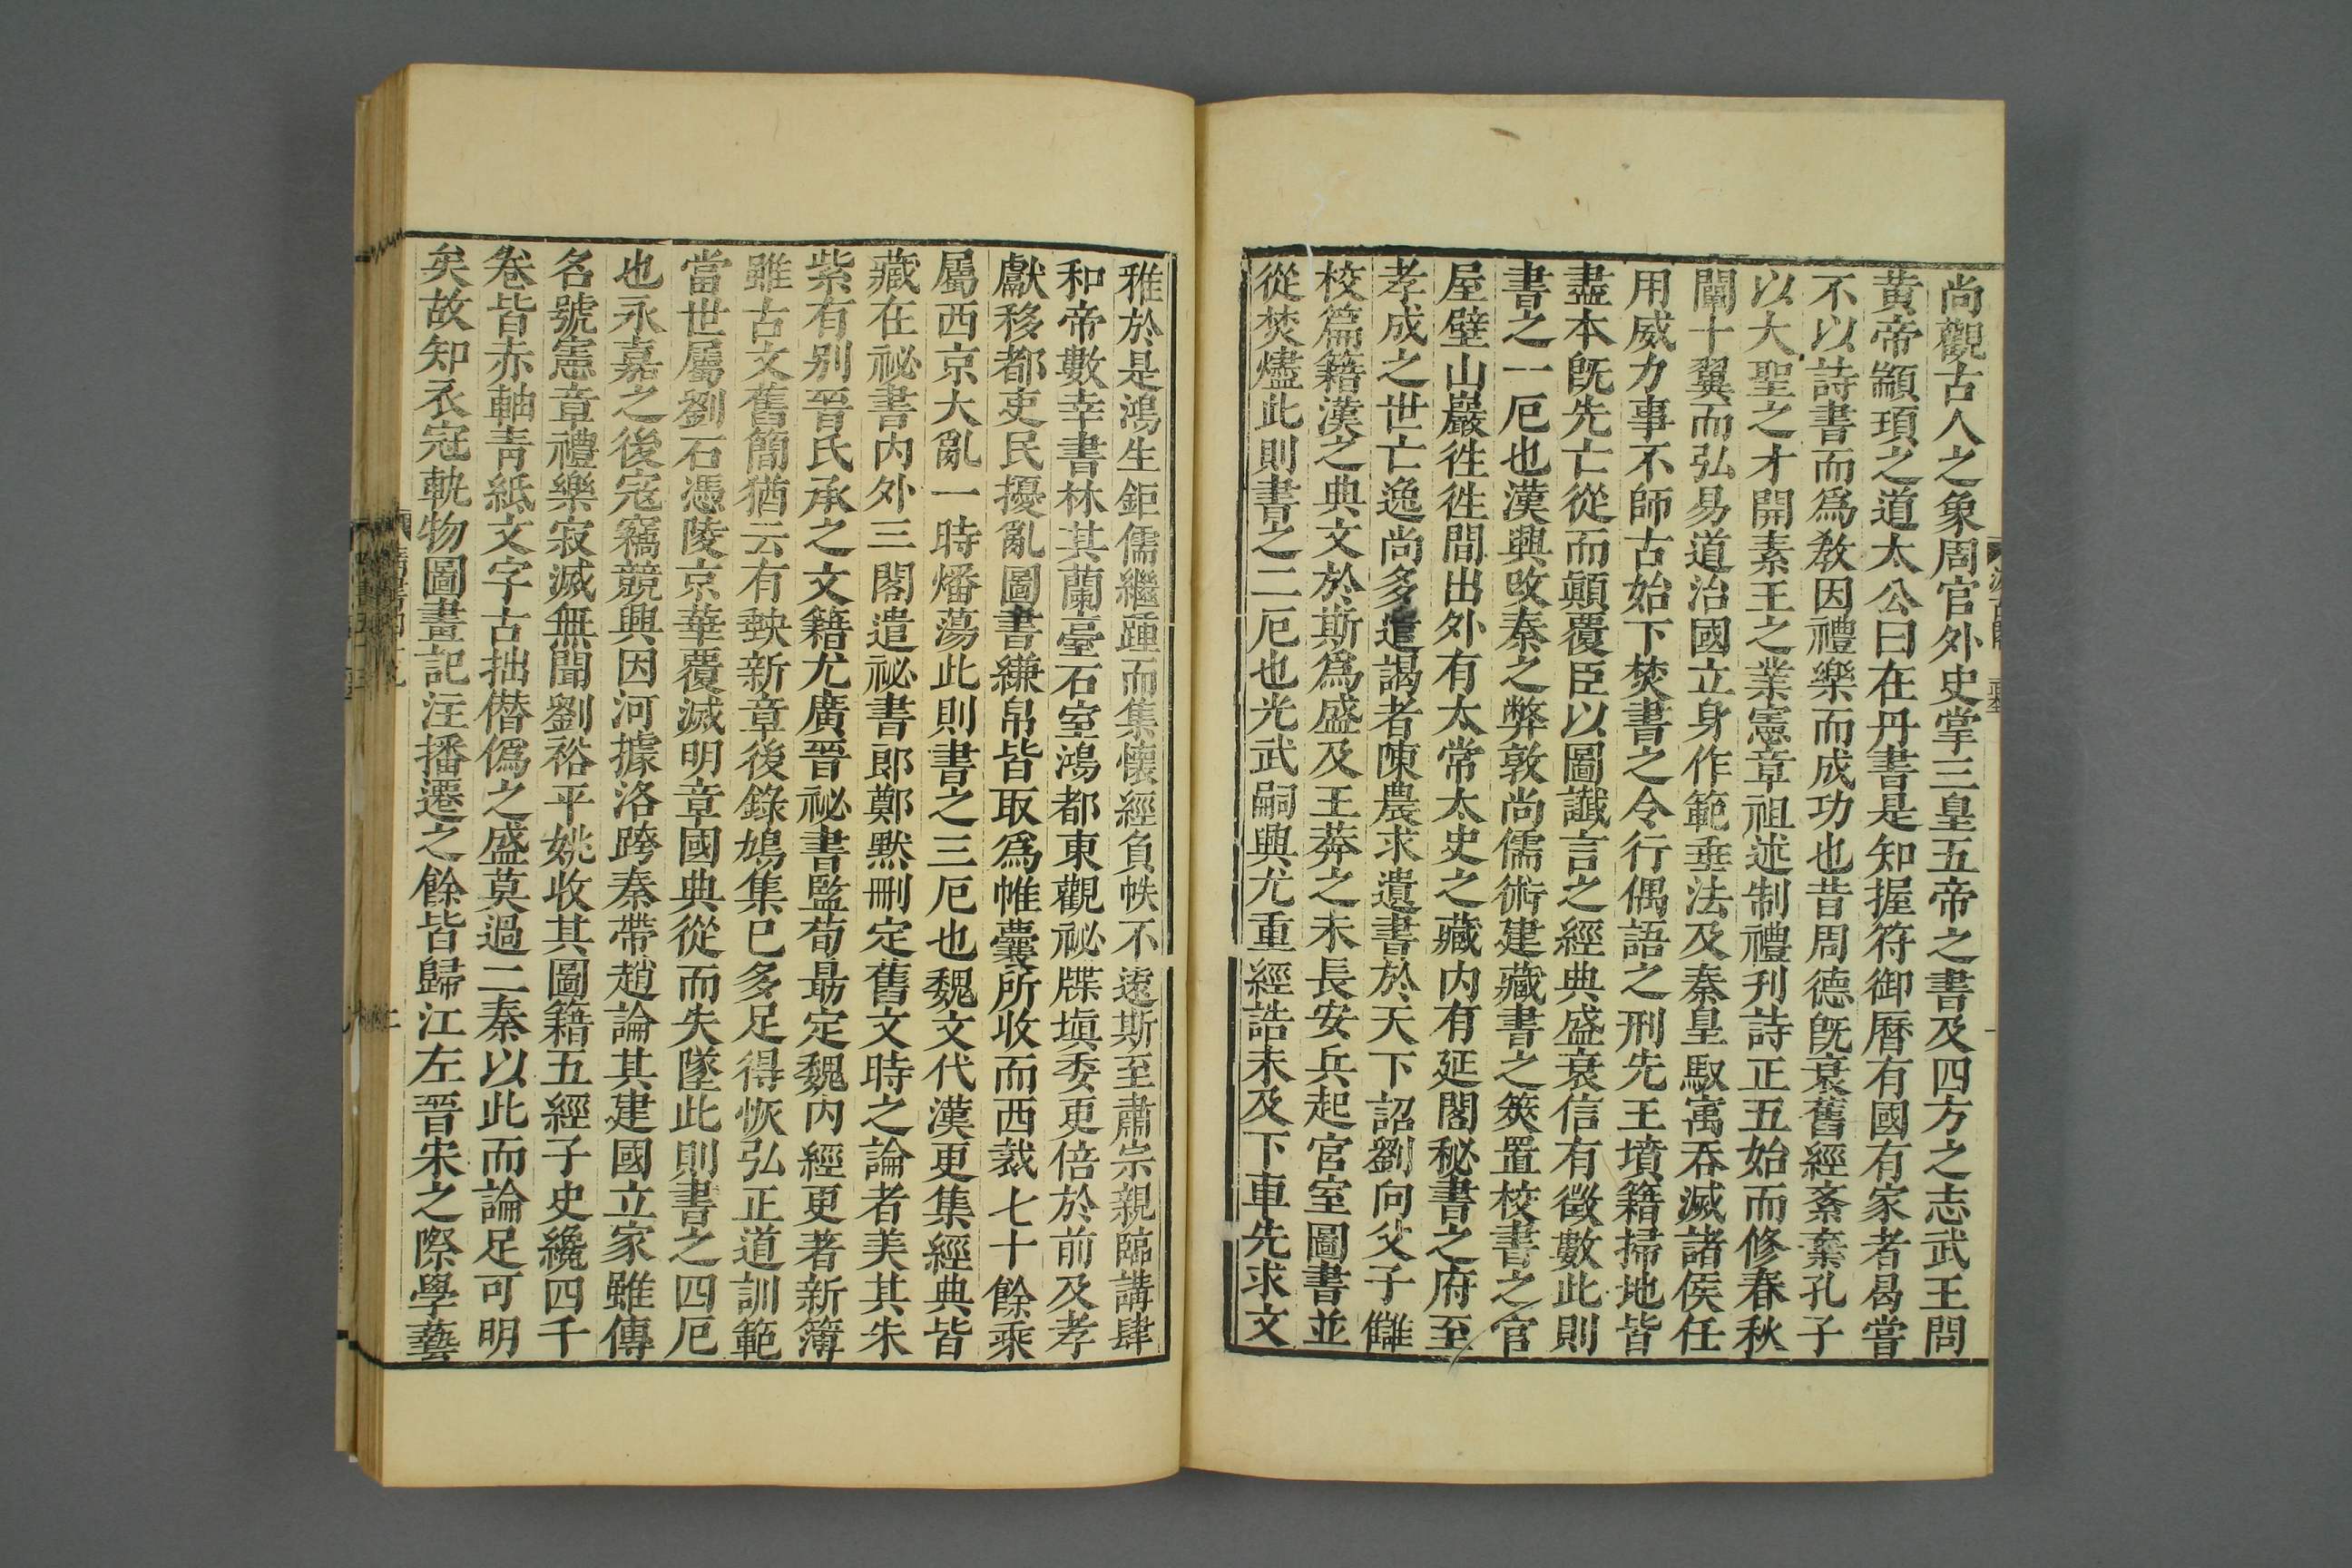 尚觀古人之象周官外史掌三皇五帝之書及四方之志武王問
黃帝顓頊之道太公曰在丹書是知握符御曆有國有家者曷嘗
不以詩書而爲教因禮樂而成功也昔周德旣衰舊經紊棄孔子
以大聖之才開素王之業憲章祖述制禮刋詩正五始而修春秋
闡十翼而弘易道治國立身作範垂法及秦皇馭寓吞滅諸侯任
用威力事不師古始下焚書之令行偶語之刑先王墳籍掃地皆
盡本旣先亡從而顚覆臣以圖讖言之經典盛衰信有徵數此則
書之一厄也漢興改秦之弊敦尚儒術建藏書之筴置校書之官
屋壁山巖徃徃間出外有太常太史之藏内有延閣秘書之府至
孝成之世亡逸尚多遣謁者陳農求遺書於天下詔劉向父子讎
校篇籍漢之典文於斯爲盛及王莽之末長安兵起宮室圖書並
從焚燼此則書之二厄也光武嗣興尤重經誥未及下車先求文
雅於是鴻生鉅儒繼踵而集懷經負帙不遠斯至肅宗親臨講肆
和帝數幸書林其蘭臺石室鴻都東觀祕牒塡委更倍於前及孝
獻移都吏民擾亂圖書縑帛皆取爲帷囊所收而西裁七十餘乘
屬西京大亂一時燔蕩此則書之三厄也魏文代漢更集經典皆
藏在祕書内外三閣遣祕書郎鄭黙刪定舊文時之論者美其朱
紫有别晉氏承之文籍尤廣晉祕書監荀勗定魏内經更著新簿
雖古文舊簡猶云有缺新章後錄鳩集已多足得恢弘正道訓範
當世屬劉石憑陵京華覆滅朙章國典從而失墜此則書之四厄
也永嘉之後寇竊競興因河據洛跨秦帶趙論其建國立家雖傳
名號憲章禮樂寂滅無聞劉裕平姚收其圖籍五經子史纔四千
卷皆赤軸青紙文字古拙僭僞之盛莫過二秦以此而論足可明
矣故知衣冠軌物圖畫記注播遷之餘皆歸江左晉宋之際學藝